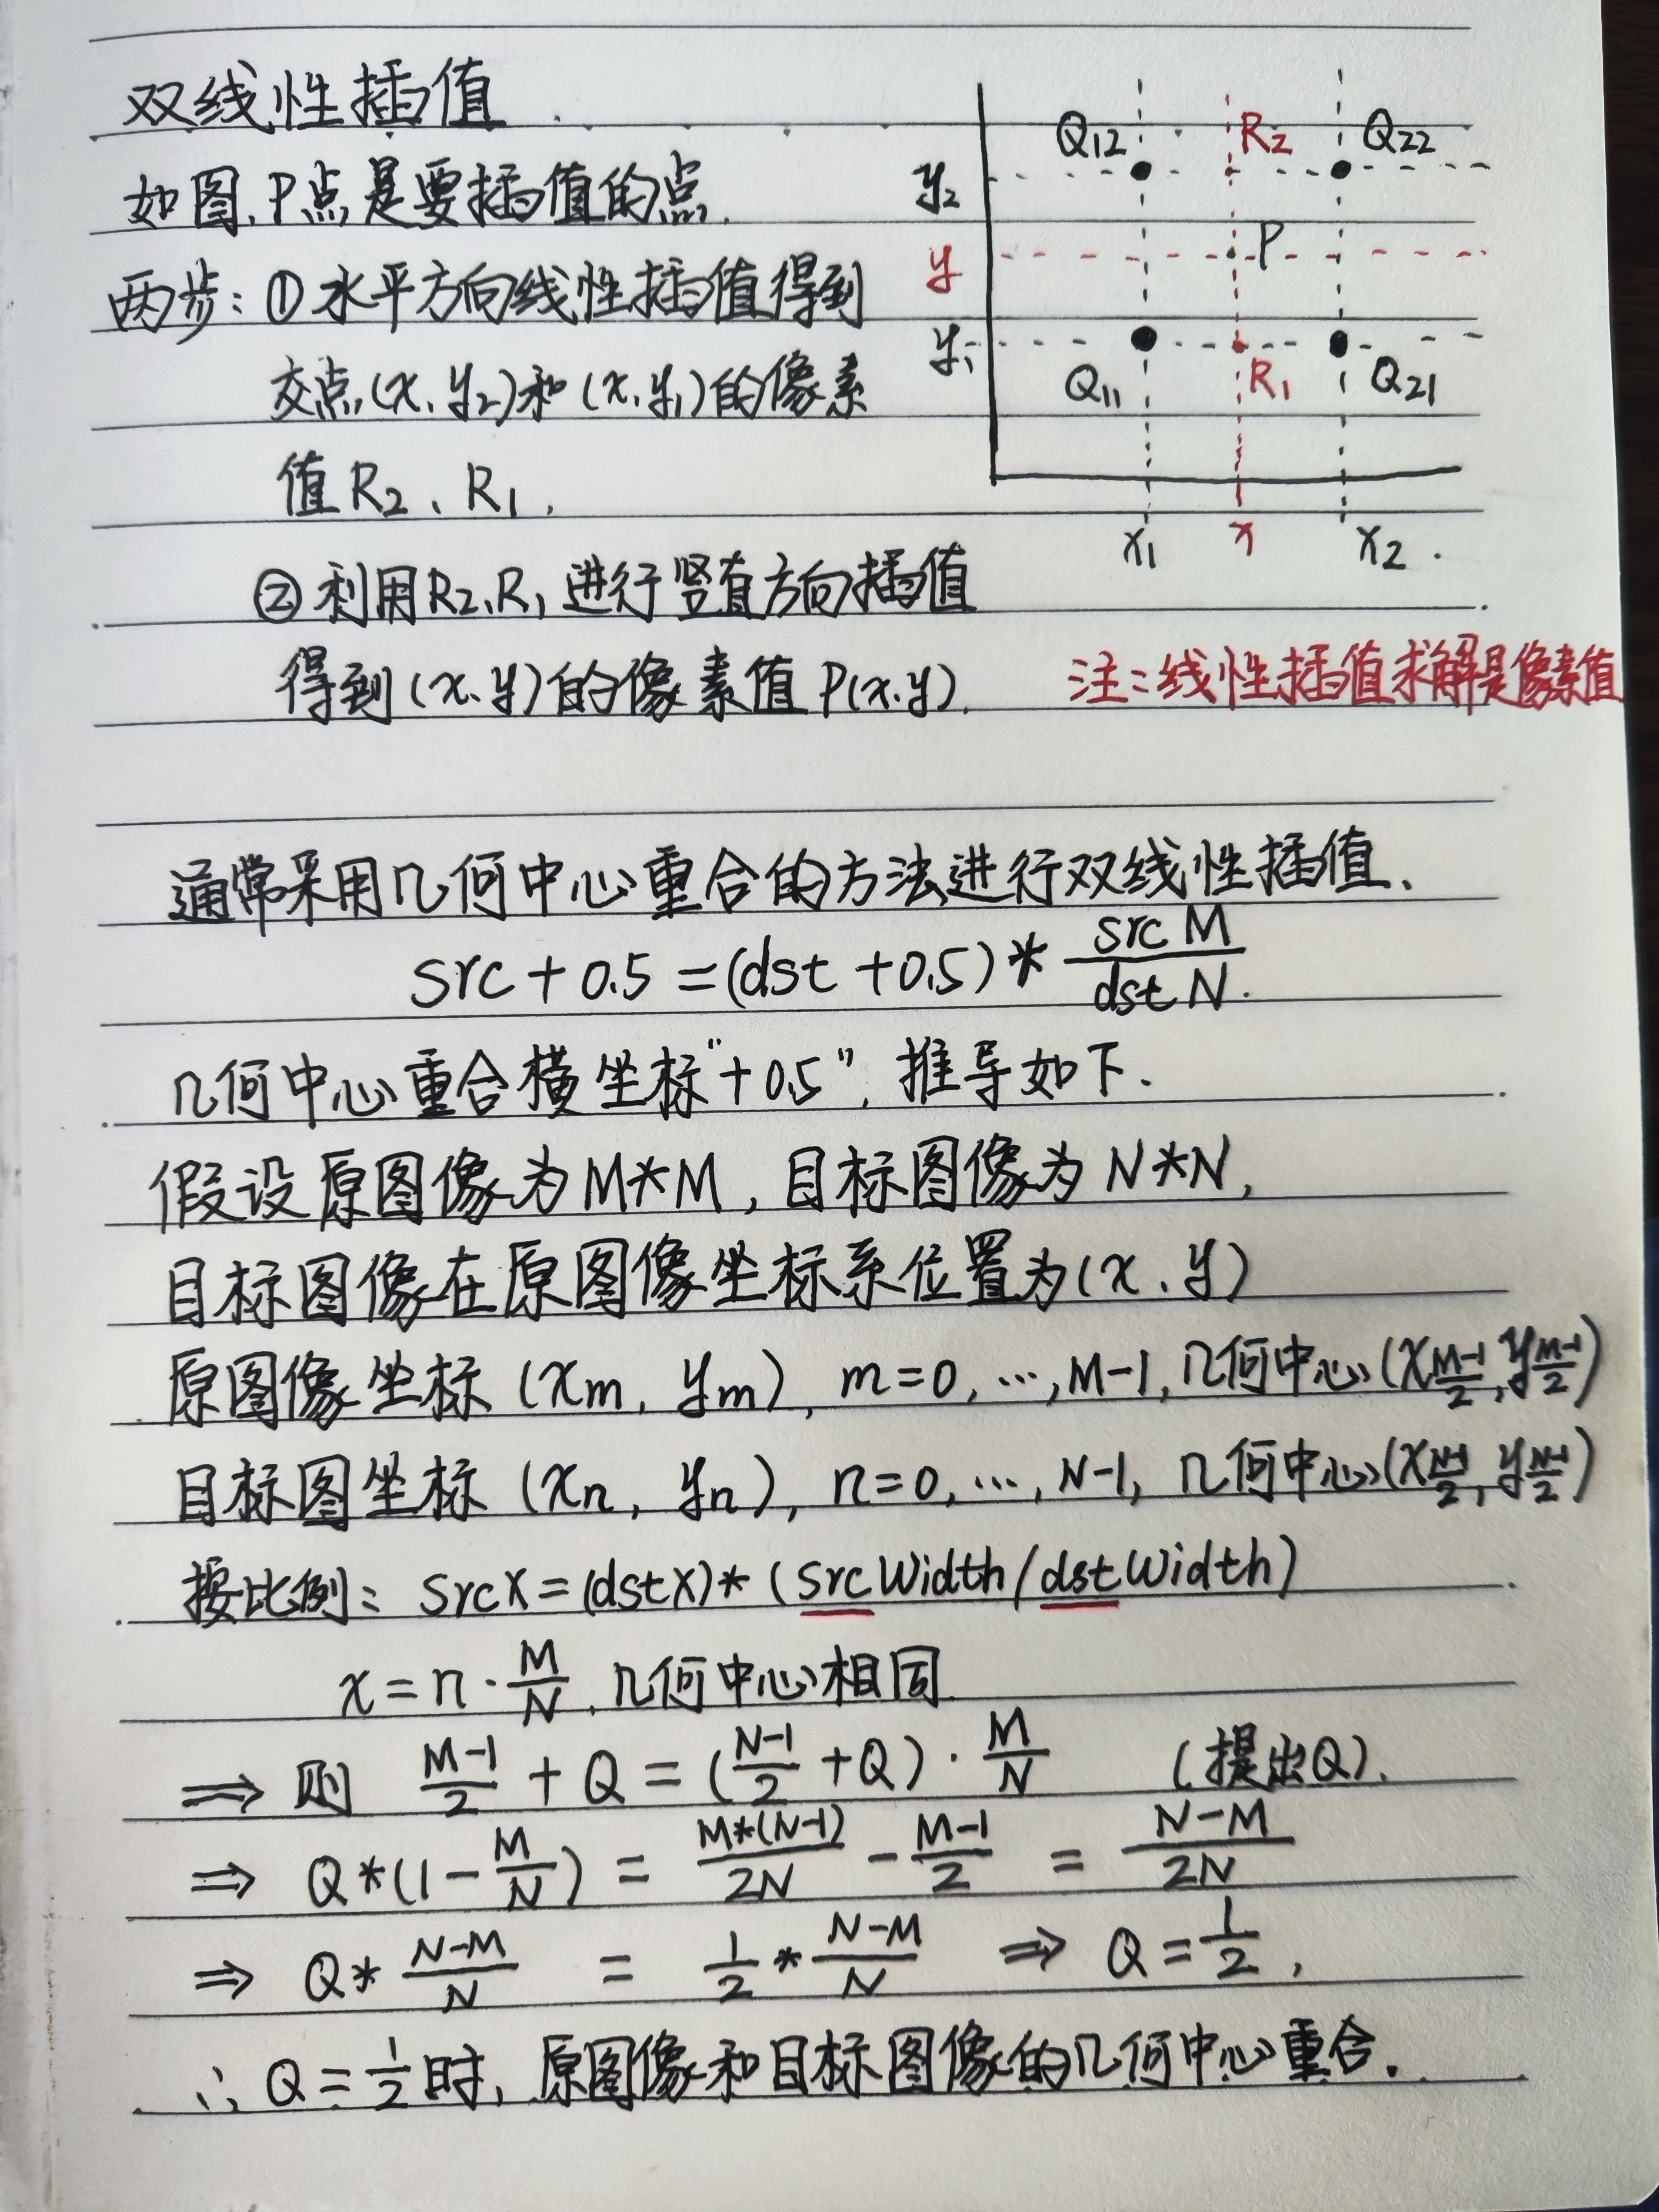 双线性插值
如图,P点是要插值的点.
两步:①水平方向线性插值得到
交点(x,y₂)和(x,y₁)的像素
值R₂、R₁,
②利用R₂,R₁进行竖直方向插值
得到(x,y)的像素值P(x,y).
Q₁₂ R₂ Q₂₂
y₂
y P
y₁
Q₁₁ R₁ Q₂₁
x₁ x x₂
注:线性插值求解是像素值
通常采用几何中心重合的方法进行双线性插值、
src+0.5=(dst+0.5)*\frac{srcM}{dstN}.
几何中心重合横坐标"+0.5",推导如下.
假设原图像为M*M,目标图像为N*N,
目标图像在原图像坐标系位置为(x,y)
原图像坐标(xₘ,yₘ),m=0,…,M-1,几何中心(x_{\frac{M-1}{2}},y_{\frac{M-1}{2}})
目标图坐标(xₙ,yₙ),n=0,…,N-1,几何中心(x_{\frac{N-1}{2}},y_{\frac{N-1}{2}})
按比例:srcX=(dstX)*(srcWidth/dstWidth)
x=n·\frac{M}{N},几何中心相同
⇒则 \frac{M-1}{2}+Q=(\frac{N-1}{2}+Q)·\frac{M}{N} (提出Q).
⇒ Q*(1-\frac{M}{N})=\frac{M*(N-1)}{2N}-\frac{M-1}{2}=\frac{N-M}{2N}
⇒ Q*\frac{N-M}{N}=\frac{1}{2}*\frac{N-M}{N} ⇒ Q=\frac{1}{2},
∴Q=\frac{1}{2}时,原图像和目标图像的几何中心重合.